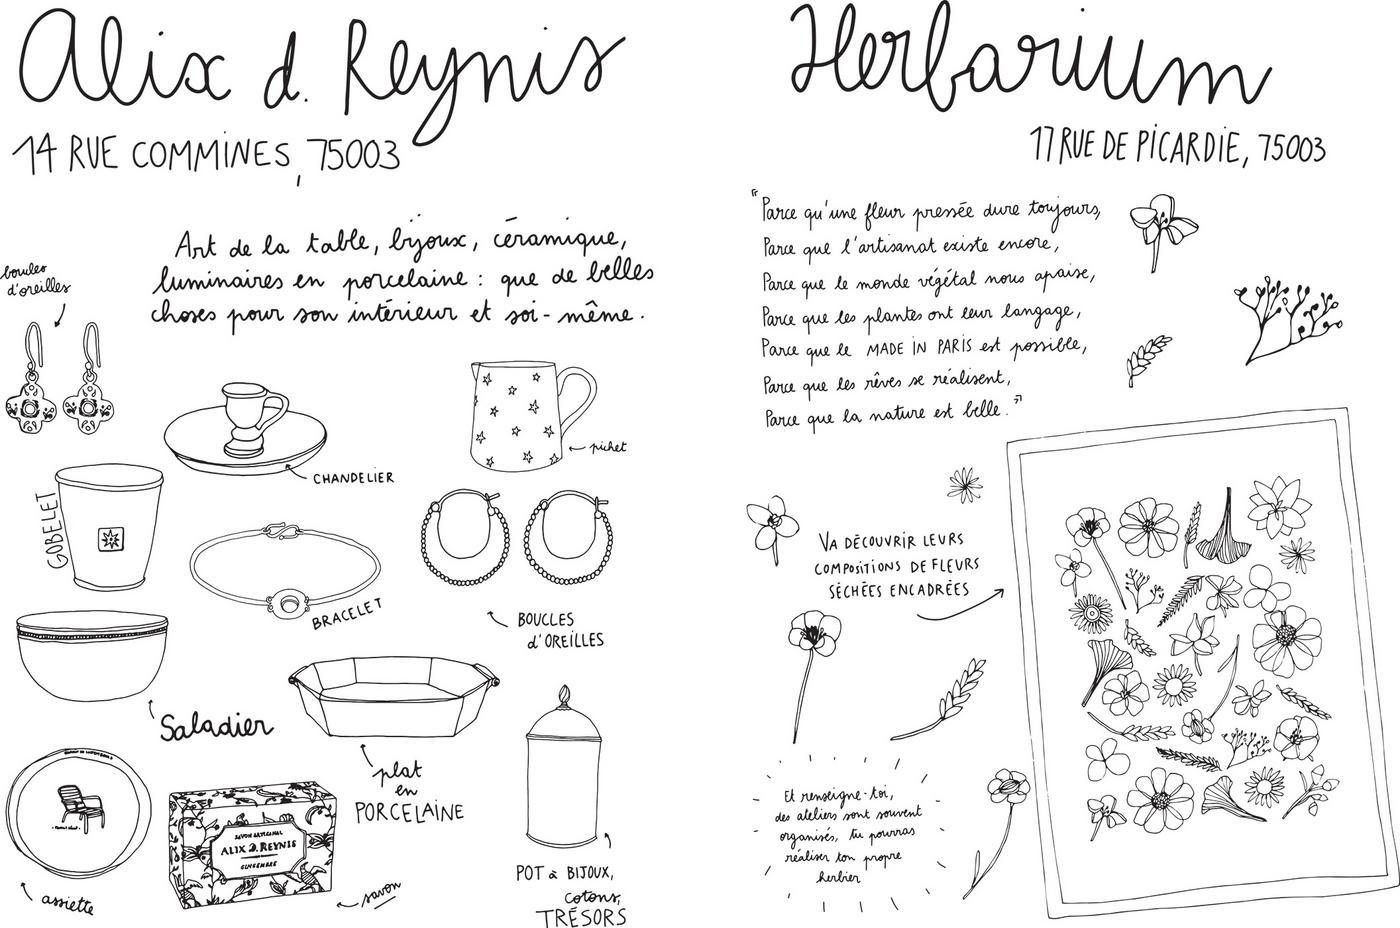 Alix d. Reynis
14 RUE COMMINES, 75003
Art de la table, bijoux, céramique,
luminaires en porcelaine : que de belles
choses pour son intérieur et soi-même.
boules
d'oreilles
CHANDELIER
pichet
GOBELET
BRACELET
BOUCLES
d'OREILLES
Saladier
plat
en
PORCELAINE
assiette
SAVON ARTISANAL
ALIX D. REYNIS
GINGEMBRE
savon
POT à BIJOUX,
cotons,
TRÉSORS
Herbarium
17 RUE DE PICARDIE, 75003
"Parce qu'une fleur pressée dure toujours,
Parce que l'artisanat existe encore,
Parce que le monde végétal nous apaise,
Parce que les plantes ont leur langage,
Parce que le MADE IN PARIS est possible,
Parce que les rêves se réalisent,
Parce que la nature est belle."
VA DÉCOUVRIR LEURS
COMPOSITIONS DE FLEURS
SÉCHÉES ENCADRÉES
Et renseigne-toi,
des ateliers sont souvent
organisés, tu pourras
réaliser ton propre
herbier